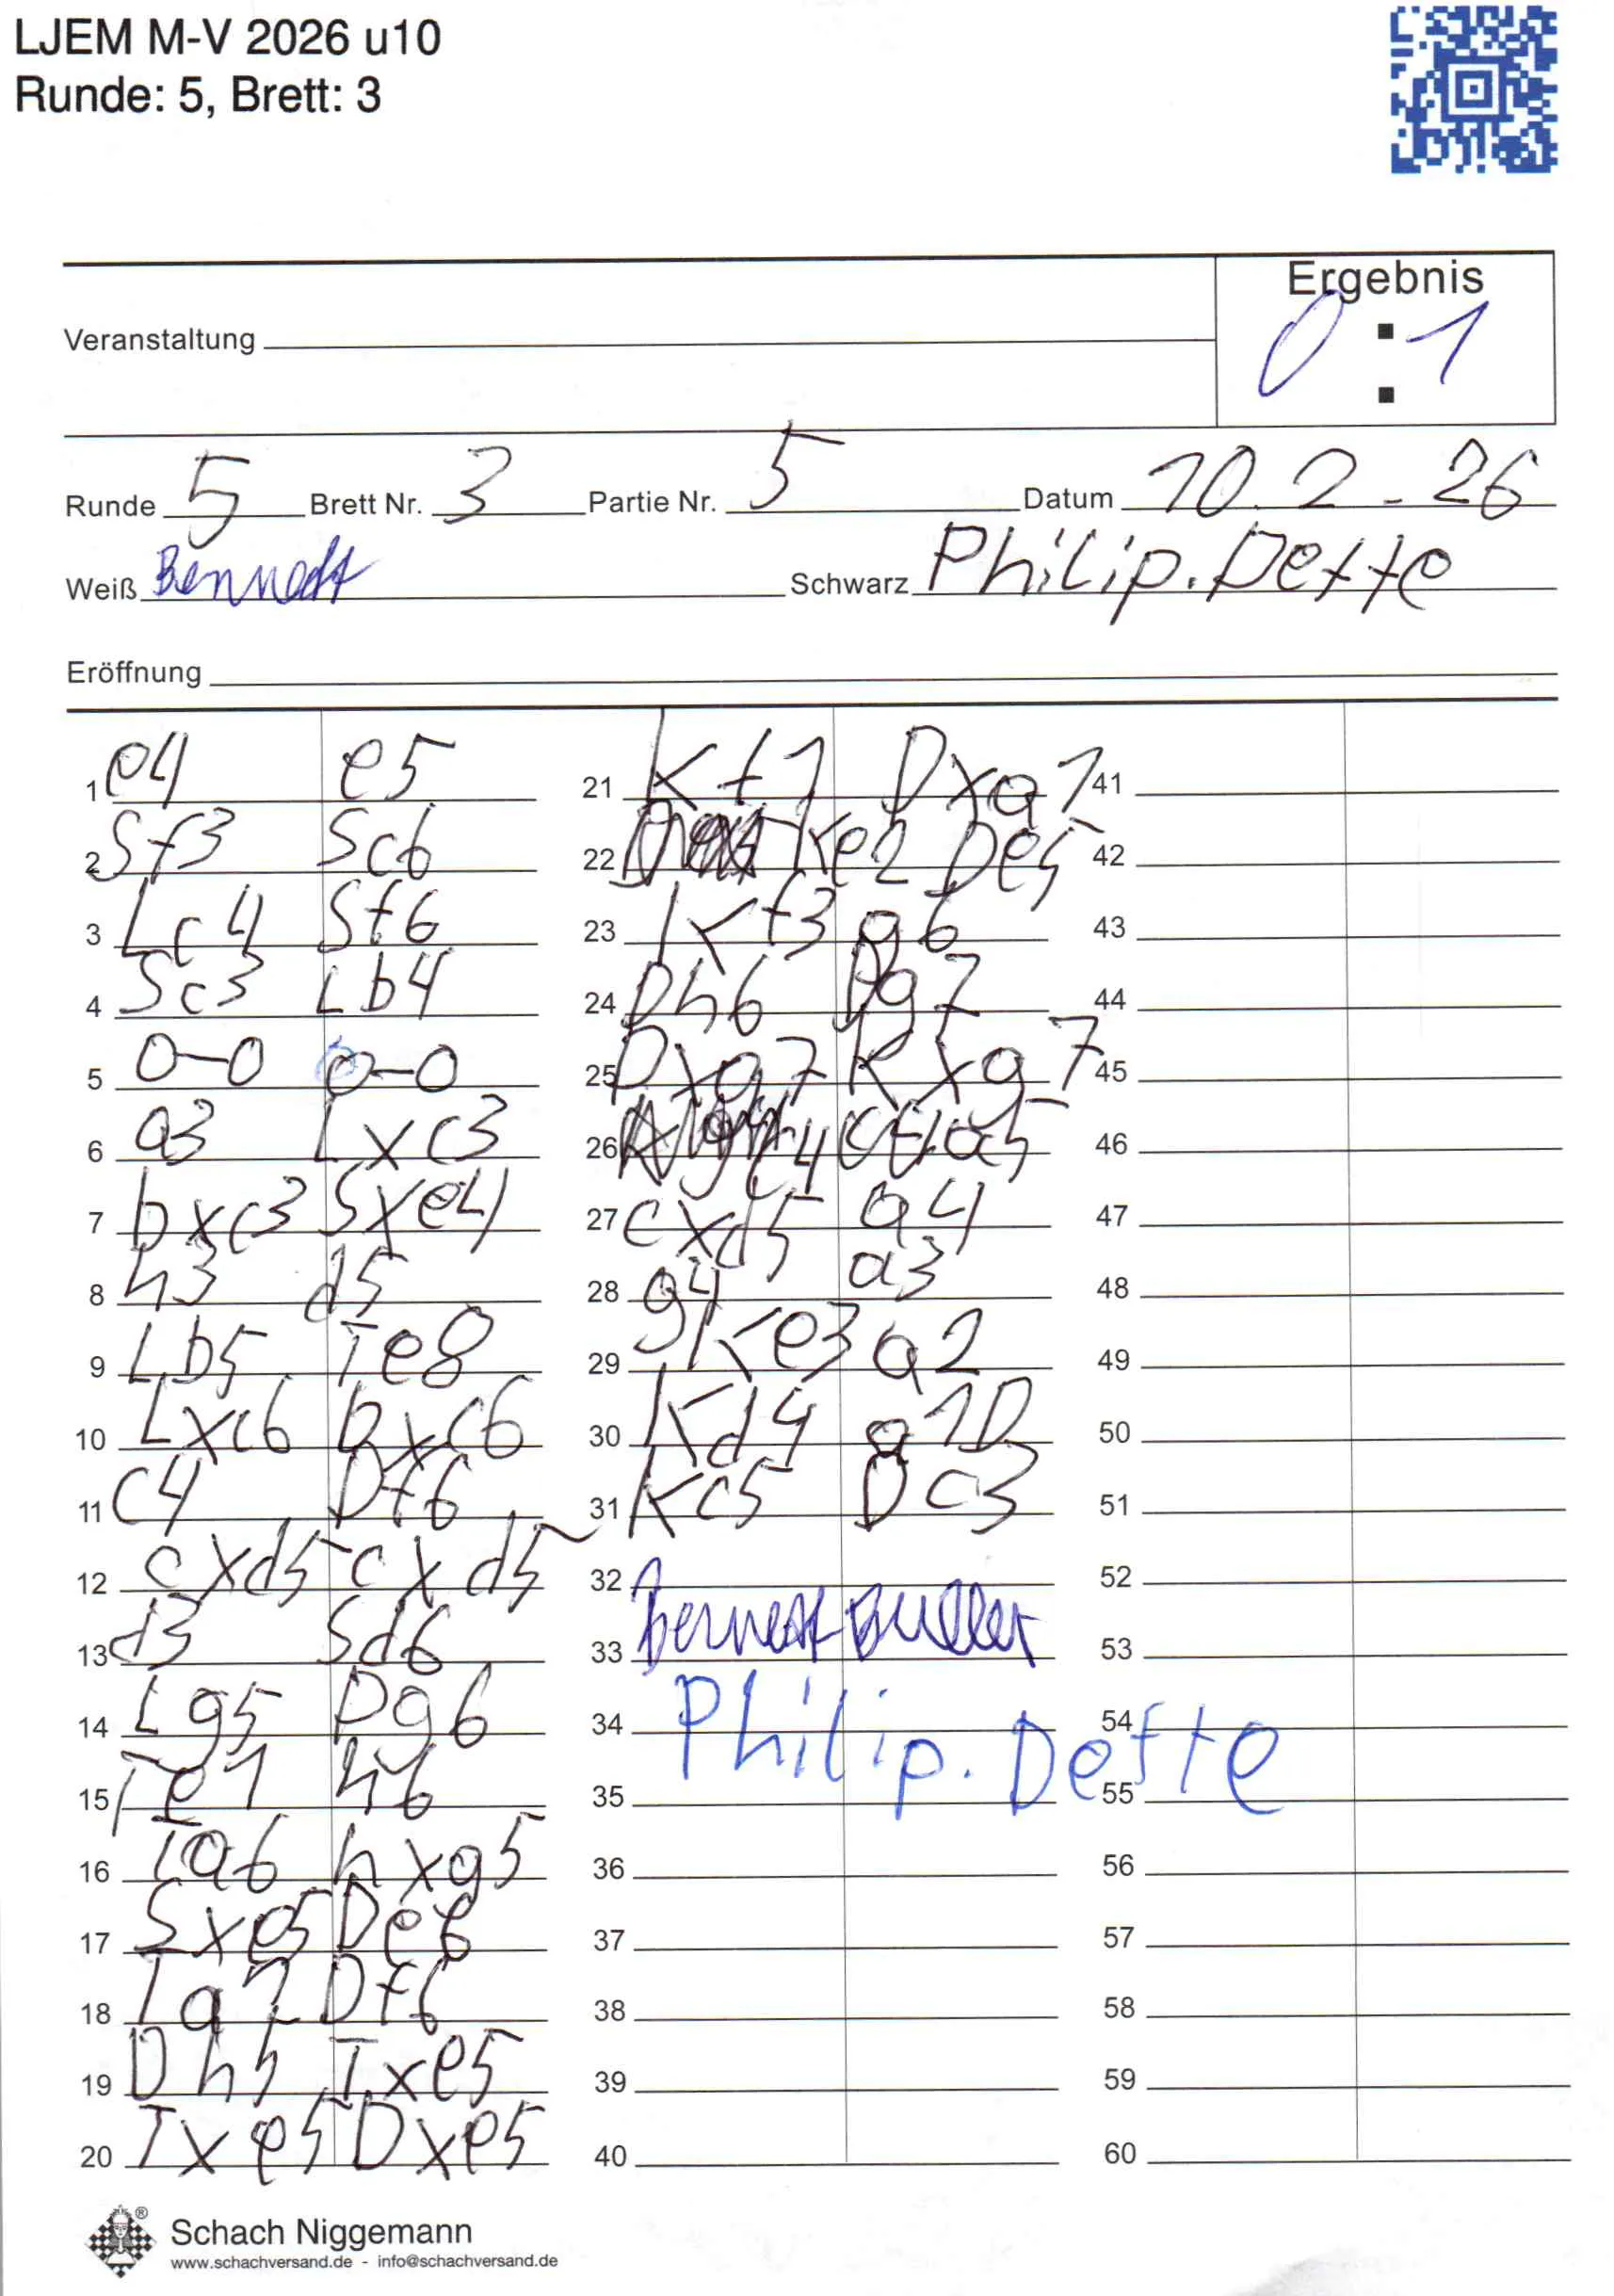 LJEM M-V 2026 u10
Runde: 5, Brett: 3
Ergebnis
0 : 1
Veranstaltung
Runde 5 Brett Nr. 3 Partie Nr. 5 Datum 10.2-26
Weiß Schwarz Philip.Dette
Eröffnung
1 e4 e5
2 Sf3 Sc6
3 Lc4 Sf6
4 Sc3 Lb4
5 0-0 0-0
6 a3 Lxc3
7 bxc3 Sxe4
8 h3 d5
9 Lb5 Te8
10 Lxc6 bxc6
11 c4 Df6
12 cxd5 cxd5
13 d3 Sd6
14 Lg5 Dg6
15 Te1 h6
16 a6 hxg5
17 Sxe5 De6
18 Ta2 Df6
19 Dh5 Txe5
20 Txe5 Dxe5
21 Kf1 Dxa1
22 Ke2 De5
23 Kf3 g6
24 Dh6 Dg7
25 Dxg7 Kxg7
26 c4 a5
27 cxd5 a4
28 g4 a3
29 Ke3 a2
30 Kd4 a1D
31 Kc5 Dc3
32
33
34 Philip.Dette
35
36
37
38
39
40
41
42
43
44
45
46
47
48
49
50
51
52
53
54
55
56
57
58
59
60
Schach Niggemann
www.schachversand.de - info@schachversand.de